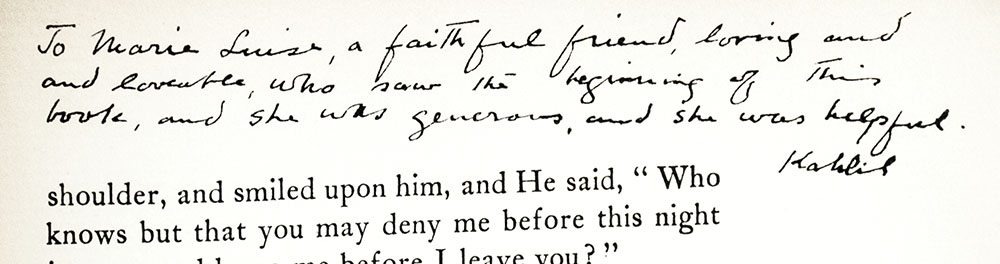 To Marie Luise, a faithful friend, loving and
and loveable, who saw the beginning of This
book, and she was generous, and she was helpful.
Kahlil
shoulder, and smiled upon him, and He said, “ Who
knows but that you may deny me before this night
me before I leave you? ”